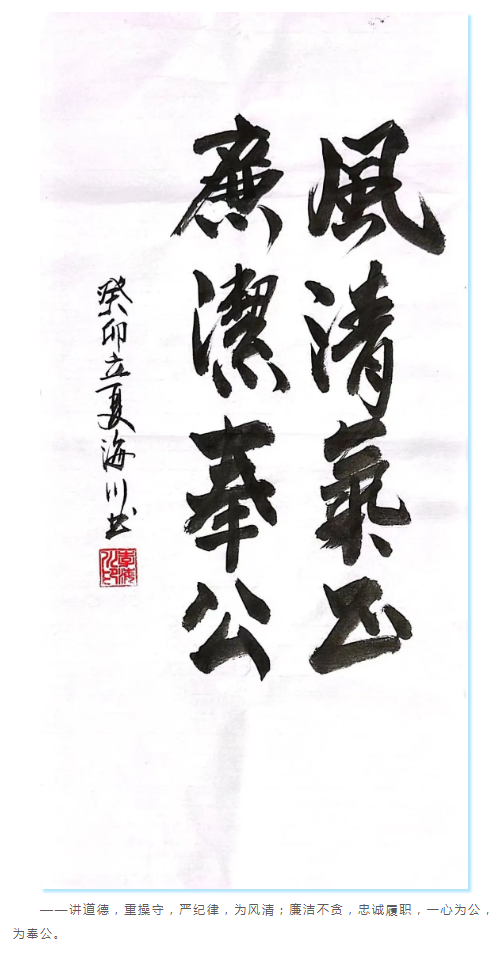 風清氣正
廉潔奉公
癸卯立夏海川书
——讲道德，重操守，严纪律，为风清；廉洁不贪，忠诚履职，一心为公，
为奉公。